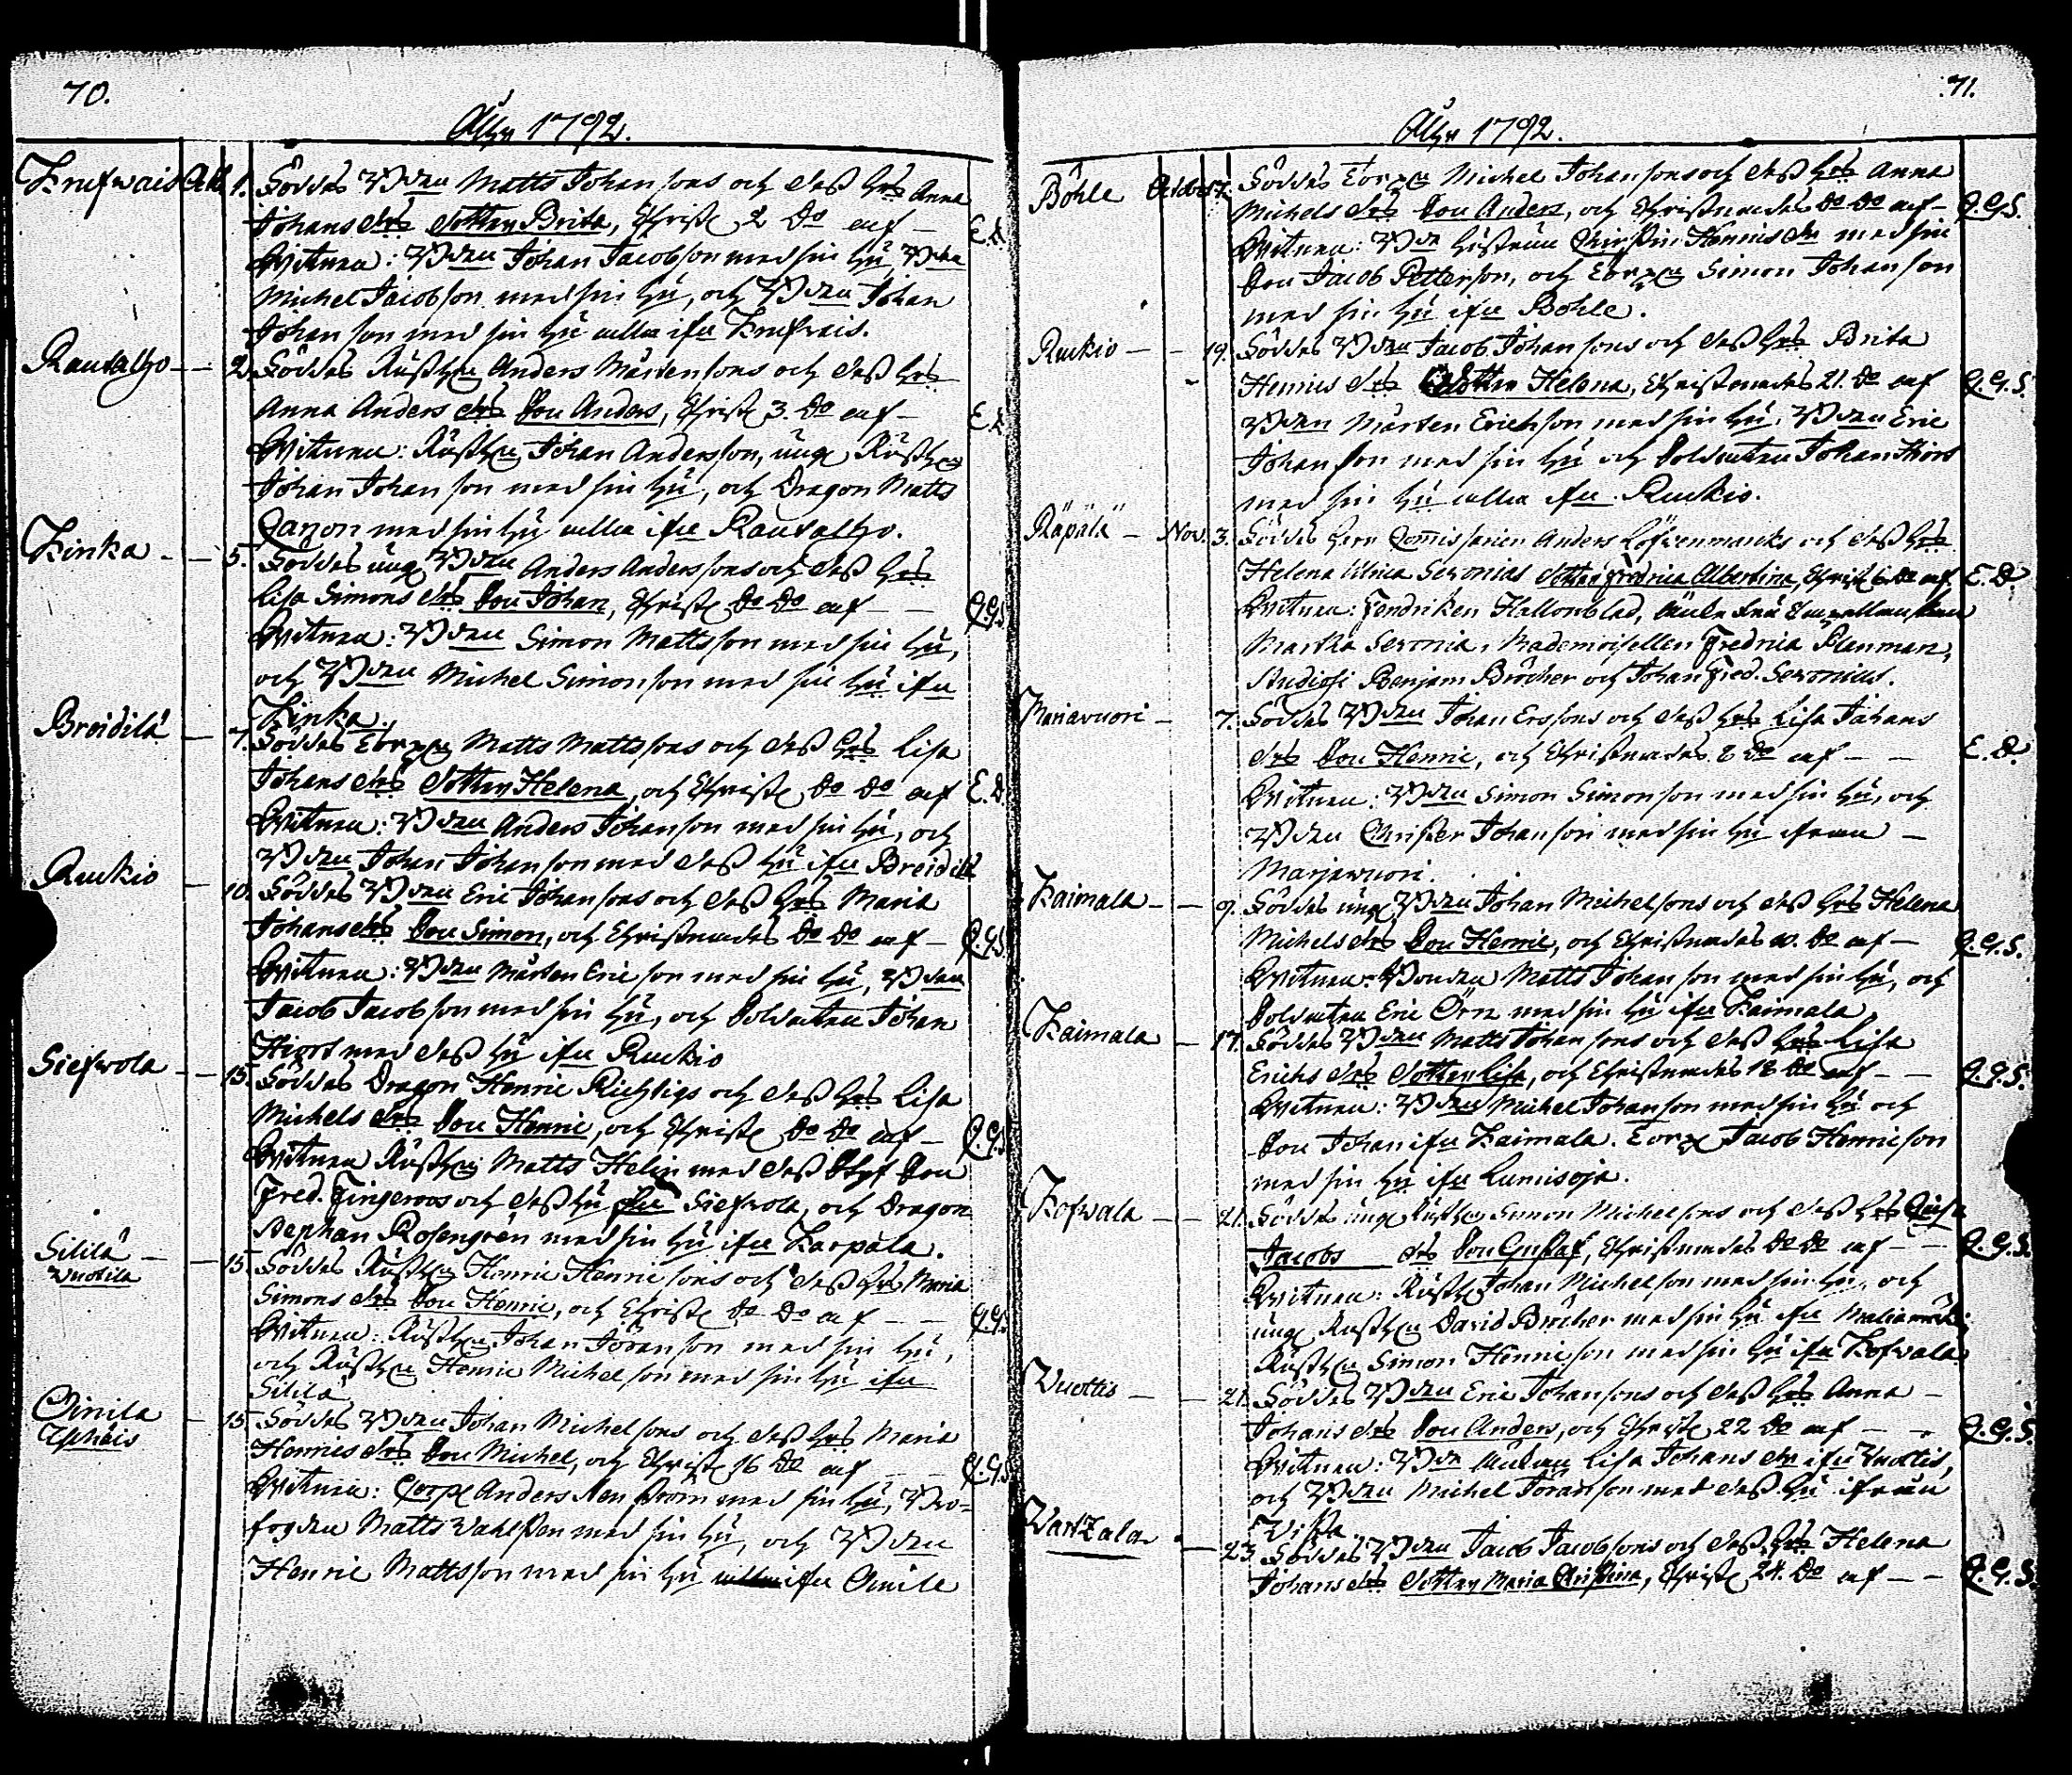 70.
Åhr 1792.
Knefwais Octob. 1. Föddes Bonden Matts Johansons och dess hus Anna
Johans drs Dotter Brita, Christ 2 Do af - E.D.
Wittnen: Bonden Johan Jacobson med sin hu, Bonden
Michel Jacobson med sin hu, och Bonden Johan
Johanson med sin hu alla ifrn Knefwais.
Rautalho - - 2. Föddes Rusth Anders Mårtensons och dess hus
Anna Anders drs Son Anders, Christ 3 Do af - E.D.
Wittnen: Rusth Johan Andersson, ung Rusth
Johan Johanson med sin hu, och Dragon Matts
med sin hu alla ifrn Rautalho.
Kinka - - 5. Föddes ung Bonden Anders Anderssons och dess hus
Lisa Simons drs Son Johan, Christ Do Do af - - G.G.S.
Wittnen: Bonden Simon Mattsson med sin hu,
och Bonden Michel Simonson med sin hu ifrn
Kinka.
Breidilä - 7. Föddes Torp Matts Mattssons och dess hus Lisa
Johans drs Dotter Helena, och Christ Do Do af E.D.
Wittnen: Bonden Anders Johanson med sin hu, och
Bonden Johan Johanson med dess hu ifrn Breidilä
Ruckio - 10. Föddes Bonden Eric Johansons och dess hus Maria
Johans drs Son Simon, och Christnades Do Do af - G.G.S.
Wittnen: Bonden Mårten Ericson med sin hu, Bonden
Jacob Jacobson med sin hu, och Soldaten Johan
Hiort med dess hu ifrn Ruckio
Siefwola - - 15. Föddes Dragon Henric Richtigs och dess hus Lisa
Michels drs Son Henric, och Christ Do Do af - G.G.S.
Wittnen Rusth Matts Helin med dess Son
Fred. Fingerroos och dess hu ifrn Siefwola, och Dragon
Stephan Rosengren med sin hu ifrn Karpala.
Sililä - - 15. Föddes Rusth Henric Henricsons och dess hus Maria
Wuotila
Simons drs Son Henric, och Christ Do Do af - - G.G.S.
Wittnen: Rusth Johan Johanson med sin hu,
och Rusth Henric Michelson med sin hu ifrn
Sililä
Oinila - 15. Föddes Bonden Johan Michelsons och dess hus Maria
Henrics drs Son Michel, och Christ 16 Do af - - G.G.S.
Wittnen: Corpl Anders med sin hu, Bro-
fogden Matts Wahlsten med sin hu, och Bonden
Henric Mattsson med sin hu ifrn Oinila
71.
Åhr 1792.
Böhle October 7. Föddes Torp Michel Johansons och dess hus Anna
Michels drs Son Anders, och Christnades Do Do af - G.G.S.
Wittnen: Hustrun Christin Henrics dr med sin
Son Jacob Petterson, och Torp Simon Johanson
med sin hu ifrn Böhle.
Ruckio - - 19. Föddes Bonden Jacob Johansons och dess hus Brita
Henrics drs Dotter Helena, Christnades 21. Do af G.G.S.
Bonden Mårten Erichson med sin hu, Bonden Eric
Johanson med sin hu och Soldaten Johan Hiort
med sin hu alla ifrn Ruckio.
Räpälä - Nov. 3. Föddes Herr Comissarien Anders Löfwenmarcks och dess hus
Helena Ulrica Seronias Dotter Fredrica Albertina, Christ Do af E.D.
Wittnen: Fendriken Hallonblad,
Martha Seronia, Mademoisellen Fredrica Planman,
Studiosi Benjam Bröcher och Johan Fred. Seronius.
Mariavuori - 7. Föddes Bonden Johan Erssons och dess hus Lisa Johans
drs Son Henric, och Christnades 8 Do af - - E.D.
Wittnen: Bonden Simon Simonson med sin hu, och
Bonden Christer Johanson med sin hu ifrån -
Marjawuori.
Kaimala - - 9. Föddes ung Bonden Johan Michelsons och dess hus Helena
Michels drs Son Henric, och Christnades 10. Do af - G.G.S.
Wittnen: Bonden Matts Johanson med sin hu, och
Soldaten Eric Örn med sin hu ifrn Kaimala.
Kaimala - 17. Föddes Bonden Matts Johansons och dess hus Lisa
Erichs drs Dotter Lisa, och Christnades 18 Do af - - G.G.S.
Wittnen: Bonden Michel Johanson med sin hu och
Son Johan ifrn Kaimala. Torp Jacob Henricson
med sin hu ifrn Lumisoja.
Kofwala - - 21. Föddes ung Rusth Simon Michelsons och dess hus
Jacobs drs Son Gustaf, Christnades Do Do af - - G.G.S.
Wittnen: Rusth Johan Michelson med sin hu, och
ung Rusth David Bröcher med sin hu ifrn
Rusth Simon Henricson med sin hu ifrn Kofwala
Wuottis - - 21. Föddes Bonden Eric Johansons och dess hus Anna -
Johans drs Son Anders, och Christ 22 Do af - - G.G.S.
Wittnen: Enkan Lisa Johans dr ifrn Wuottis,
och Bonden Michel Jöranson med dess hu ifrån
Wista.
Wartzala - 23. Föddes Bonden Jacob Jacobsons och dess hus Helena
Johans drs Dotter Maria Christina, Christ 24. Do af - - G.G.S.